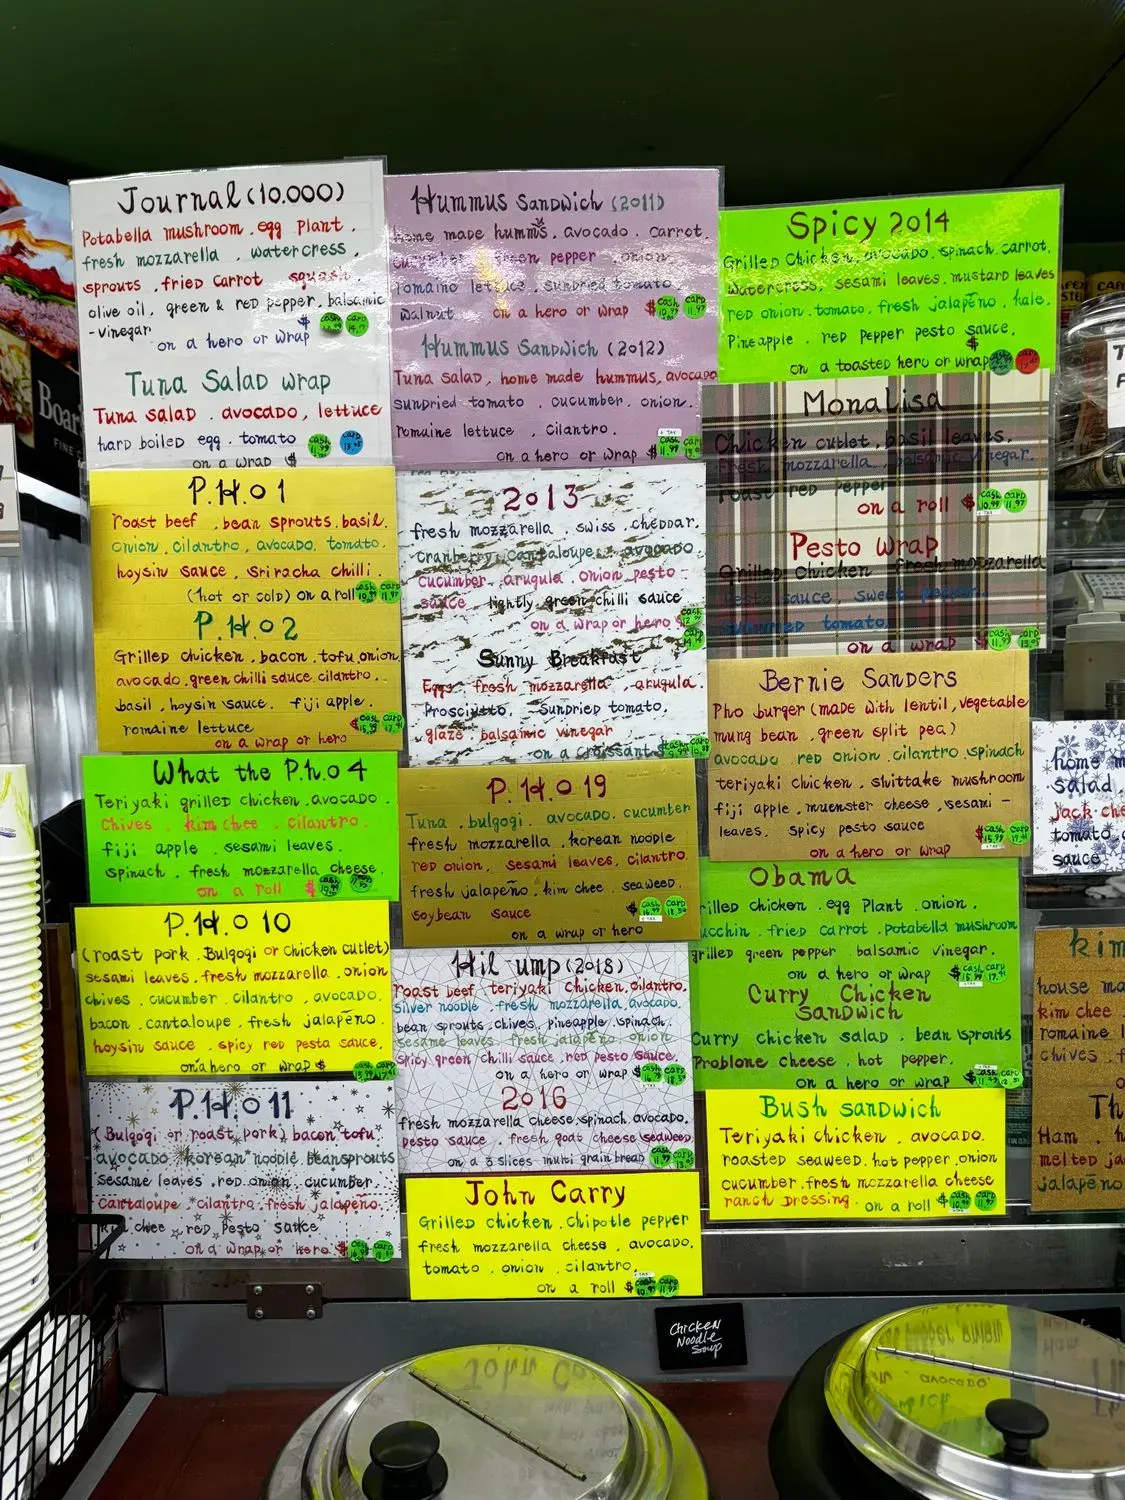 Journal (10.000)
Potabella mushroom . egg plant .
fresh mozzarella . watercress .
sprouts . fried carrot squash .
olive oil . green & red pepper . balsamic
- vinegar
on a hero or wrap $
cash card
Tuna Salad wrap
Tuna salad . avocado , lettuce
hard boiled egg . tomato
on a wrap $
cash card
Hummus Sandwich (2011)
home made hummus . avocado . carrot .
cucumber . green pepper . onion .
romaine lettuce . sundried tomato .
walnut on a hero or wrap $
cash 10.99 card 11.97
Hummus Sandwich (2012)
Tuna salad , home made hummus , avocado
sundried tomato . cucumber . onion .
romaine lettuce . cilantro .
on a hero or wrap $
cash 11.99 card
Spicy 2014
Grilled Chicken , avocado . spinach . carrot .
Watercress , sesami leaves . mustard leaves
red onion . tomato . fresh jalapeño . kale .
Pineapple . red pepper pesto sauce .
on a toasted hero or wrap $
Monalisa
Chicken cutlet , basil leaves .
fresh mozzarella , balsamic vinegar .
roast red pepper
on a roll $
cash 10.99 card 11.97
Pesto wrap
Grilled Chicken fresh mozzarella
Pesto sauce , sweet pepper .
sundried tomato .
on a wrap $
cash 11.99 card 13.05
P.H.O 1
roast beef . bean sprouts . basil .
onion . cilantro , avocado . tomato .
hoysin sauce , sriracha chilli .
(hot or cold) on a roll
cash 10.99 card 11.97
P.H.O 2
Grilled chicken . bacon . tofu . onion
avocado . green chilli sauce . cilantro .
basil , hoysin sauce . fiji apple .
romaine lettuce
on a wrap or hero $
cash 15.99 card 17.41
2013
fresh mozzarella . swiss . cheddar .
Cranberry . cantaloupe . avocado
cucumber . arugula . onion pesto -
sauce lightly green chilli sauce
on a wrap or hero $
Sunny Breakfast
Eggs , fresh mozzarella , arugula .
Prosciutto , Sundried tomato .
glaze balsamic vinegar
on a croissant $
What the P.h.o 4
Teriyaki grilled chicken . avocado .
Chives . kim chee . cilantro .
fiji apple . sesami leaves .
spinach . fresh mozzarella cheese
on a roll $
cash 10.99 card 11.97
P.H.O 19
Tuna . bulgogi . avocado . cucumber
fresh mozzarella . korean noodle
red onion , sesami leaves , cilantro .
fresh jalapeño . kim chee . seaweed .
soybean sauce $
cash 16.99 card
on a wrap or hero
Bernie Sanders
Pho burger (made with lentil , vegetable
mung bean . green split pea)
avocado . red onion . cilantro . spinach
teriyaki chicken , shittake mushroom
fiji apple , muenster cheese , sesami -
leaves . spicy pesto sauce
cash 15.99 card 17.41
on a hero or wrap
Obama
grilled chicken . egg plant . onion .
zucchin . fried carrot . potabella mushroom
grilled green pepper . balsamic vinegar .
on a hero or wrap $
cash 15.99 card 17.41
Curry Chicken
Sandwich
Curry chicken salad . bean sprouts
Problone cheese . hot pepper .
on a hero or wrap $
cash 11.99 card
P.H.O 10
(roast pork . Bulgogi or chicken cutlet)
sesami leaves . fresh mozzarella . onion
chives . cucumber . cilantro , avocado .
bacon . cantaloupe . fresh jalapeño .
hoysin sauce . spicy red pesta sauce .
on a hero or wrap $
Hil-ump (2018)
roast beef teriyaki chicken . cilantro .
silver noodle . fresh mozzarella . avocado .
bean sprouts . chives , pineapple . spinach .
sesame leaves fresh jalapeño onion
spicy green chilli sauce . red pesto sauce .
on a hero or wrap $
2016
fresh mozzarella cheese , spinach . avocado .
pesto sauce . fresh goat cheese , seaweed
on a 3 slices multi grain bread
cash 11.99 card 13.05
P.H.O 11
(Bulgogi or roast pork) bacon tofu
avocado . korean noodle . beansprouts
sesame leaves . red onion . cucumber
cantaloupe . cilantro . fresh jalapeño .
kim chee red pesto sauce
on a wrap or hero $
John Carry
Grilled chicken . chipotle pepper
fresh mozzarella cheese , avocado .
tomato . onion . cilantro .
on a roll $
cash 10.99 card 11.97
Bush sandwich
Teriyaki chicken . avocado .
roasted seaweed . hot pepper . onion
cucumber . fresh mozzarella cheese
ranch dressing . on a roll $
cash 10.99 card 11.97
home m
salad .
jack che
tomato
sauce
kim
house ma
kim chee
romaine l
chives . f
Th
Ham . h
melted ja
jalapeño
Chicken
Noodle
Soup
Boar's
FINE